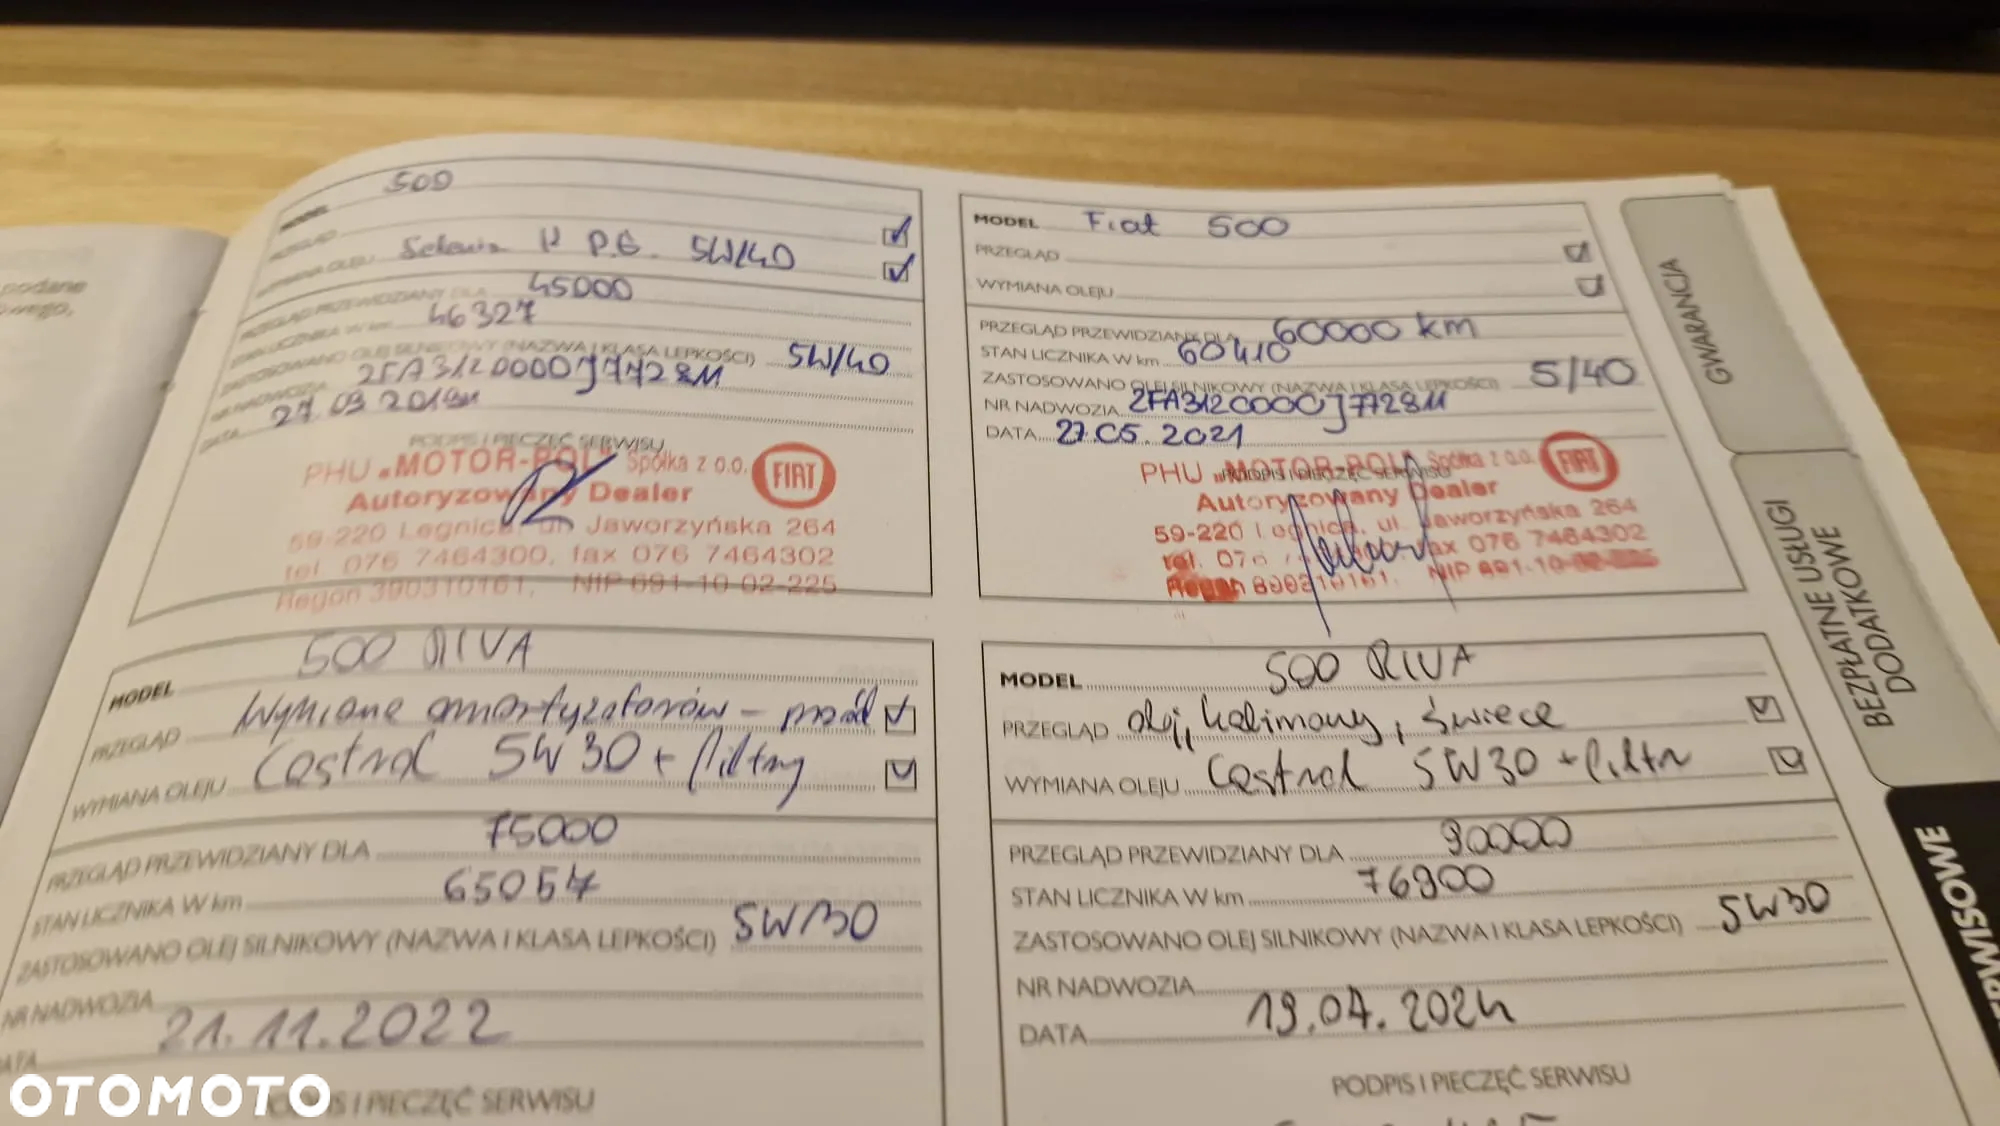 podane
MODEL 500
PRZEGLĄD
WYMIANA OLEJU Selenia K P.E. 5W/40
PRZEGLĄD PRZEWIDZIANY DLA 45000
STAN LICZNIKA W km 46327
ZASTOSOWANO OLEJ SILNIKOWY (NAZWA I KLASA LEPKOŚCI) 5W/40
NR NADWOZIA ZFA3120000J77281
DATA 27.03.2019
PODPIS I PIECZĘĆ SERWISU
PHU „MOTOR-POL" Spółka z o.o. FIAT
Autoryzowany Dealer
59-220 Legnica, ul. Jaworzyńska 264
tel. 076 7464300, fax 076 7464302
Regon 390310161, NIP 691-10-02-225
MODEL Fiat 500
PRZEGLĄD
WYMIANA OLEJU
PRZEGLĄD PRZEWIDZIANY DLA 60000 km
STAN LICZNIKA W km 60410
ZASTOSOWANO OLEJ SILNIKOWY (NAZWA I KLASA LEPKOŚCI) 5/40
NR NADWOZIA ZFA3120000J77281
DATA 27.05.2021
PODPIS I PIECZĘĆ SERWISU
PHU „MOTOR-POL" Spółka z o.o. FIAT
Autoryzowany Dealer
59-220 Legnica, ul. Jaworzyńska 264
tel. 076 fax 076 7464302
Regon NIP 691-10
MODEL 500 RIVA
PRZEGLĄD Wymiana amortyzatorów - przód
WYMIANA OLEJU Castrol 5W30 + filtry
PRZEGLĄD PRZEWIDZIANY DLA 75000
STAN LICZNIKA W km 65057
ZASTOSOWANO OLEJ SILNIKOWY (NAZWA I KLASA LEPKOŚCI) 5W/30
NR NADWOZIA
DATA 21.11.2022
PODPIS I PIECZĘĆ SERWISU
MODEL 500 RIVA
PRZEGLĄD olej, świece
WYMIANA OLEJU Castrol 5W30 + filtr
PRZEGLĄD PRZEWIDZIANY DLA 90000
STAN LICZNIKA W km 76900
ZASTOSOWANO OLEJ SILNIKOWY (NAZWA I KLASA LEPKOŚCI) 5W30
NR NADWOZIA
DATA 19.04.2024
PODPIS I PIECZĘĆ SERWISU
GWARANCJA
BEZPŁATNE USŁUGI
DODATKOWE
ERWISOWE
OTOMOTO